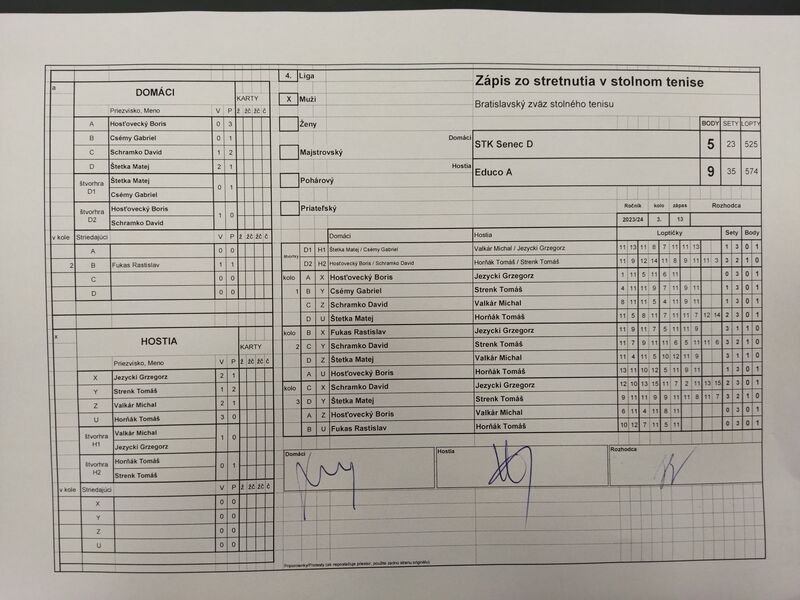 a
DOMÁCI
Priezvisko, Meno V P KARTY ž žč žč č
A Hosťovecký Boris 0 3
B Csémy Gabriel 0 1
C Schramko David 1 2
D Štetka Matej 2 1
štvorhra D1 Štetka Matej 0 1
Csémy Gabriel
štvorhra D2 Hosťovecký Boris 1 0
Schramko David
v kole Striedajúci V P ž žč žč č
A 0 0
2 B Fukas Rastislav 1 1
C 0 0
D 0 0
x
HOSTIA
Priezvisko, Meno V P KARTY ž žč žč č
X Jezycki Grzegorz 2 1
Y Strenk Tomáš 1 2
Z Valkár Michal 2 1
U Horňák Tomáš 3 0
štvorhra H1 Valkár Michal 1 0
Jezycki Grzegorz
štvorhra H2 Horňák Tomáš 0 1
Strenk Tomáš
v kole Striedajúci V P ž žč žč č
X 0 0
Y 0 0
Z 0 0
U 0 0
4. Liga
X Muži
Ženy
Majstrovský
Pohárový
Priateľský
Zápis zo stretnutia v stolnom tenise
Bratislavský zväz stolného tenisu
BODY SETY LOPTY
Domáci STK Senec D 5 23 525
Hostia Educo A 9 35 574
Ročník kolo zápas Rozhodca
2023/24 3. 13
Domáci Hostia Loptičky Sety Body
štvorhry D1 H1 Štetka Matej / Csémy Gabriel Valkár Michal / Jezycki Grzegorz 11 13 11 8 7 11 11 13 1 3 0 1
D2 H2 Hosťovecký Boris / Schramko David Horňák Tomáš / Strenk Tomáš 11 9 12 14 11 8 9 11 11 3 3 2 1 0
kolo A X Hosťovecký Boris Jezycki Grzegorz 1 11 5 11 6 11 0 3 0 1
1 B Y Csémy Gabriel Strenk Tomáš 4 11 11 9 7 11 9 11 1 3 0 1
C Z Schramko David Valkár Michal 8 11 11 5 4 11 9 11 1 3 0 1
D U Štetka Matej Horňák Tomáš 11 5 8 11 7 11 11 7 12 14 2 3 0 1
kolo B X Fukas Rastislav Jezycki Grzegorz 11 9 11 7 5 11 11 9 3 1 1 0
2 C Y Schramko David Strenk Tomáš 11 7 9 11 11 6 5 11 11 6 3 2 1 0
D Z Štetka Matej Valkár Michal 11 4 11 5 10 12 11 9 3 1 1 0
A U Hosťovecký Boris Horňák Tomáš 13 11 10 12 5 11 9 11 1 3 0 1
kolo C X Schramko David Jezycki Grzegorz 12 10 13 15 11 7 2 11 13 15 2 3 0 1
3 D Y Štetka Matej Strenk Tomáš 9 11 11 9 9 11 11 8 11 7 3 2 1 0
A Z Hosťovecký Boris Valkár Michal 6 11 4 11 8 11 0 3 0 1
B U Fukas Rastislav Horňák Tomáš 10 12 7 11 5 11 0 3 0 1
Domáci Hostia Rozhodca
Pripomienky/Protesty (ak nepostačuje priestor, použite zadnú stranu originálu)